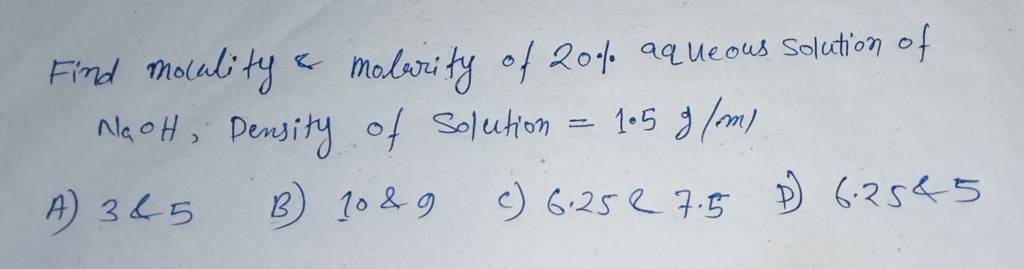 Find molality & molarity of 20% aqueous solution of
NaOH, Density of Solution = 1.5 g/ml
A) 3 & 5 B) 10 & 9 C) 6.25 & 7.5 D) 6.25 & 5